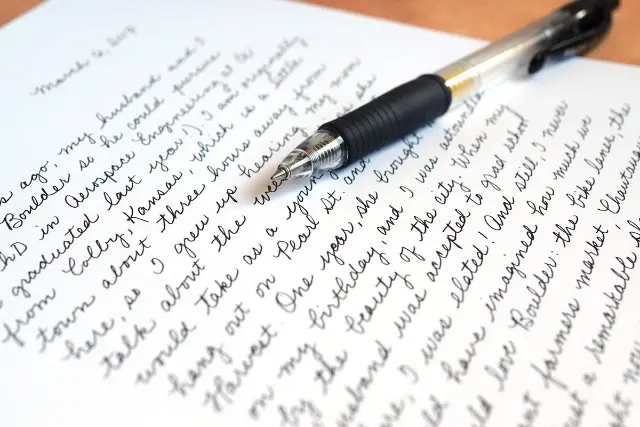 March 6, 2019
ago, my husband and I
Boulder so he could pursue
PhD in Aerospace Engineering at
graduated last year!) I am originally
from Colby, Kansas, which is a little
town about three hours away from
here, so I grew up hearing my mom
talk about the as
would take as a young and
hang out on Pearl St. and
Harvest. One year, she brought
on my birthday, and I was astounded
by the beauty of the city. When my
husband was accepted to grad school
I was elated! And still, I never
have imagined how much we
love Boulder: the bike lanes, the
farmers market, Chautauqua
just a remarkable